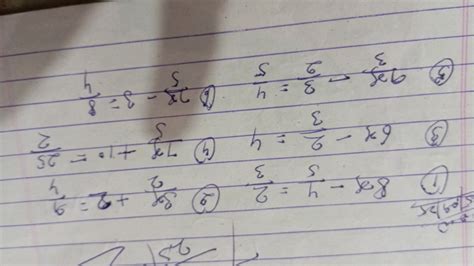 ① 8x - 4/5 = 2/3 ② 3x/2 + 2 = 9/4
③ 6x - 2/3 = 4 ④ 7x/5 + 10 = 25/2
⑤ 9x/3 - 3/2 = 4/5 ⑥ 7x/5 - 3 = 8/4